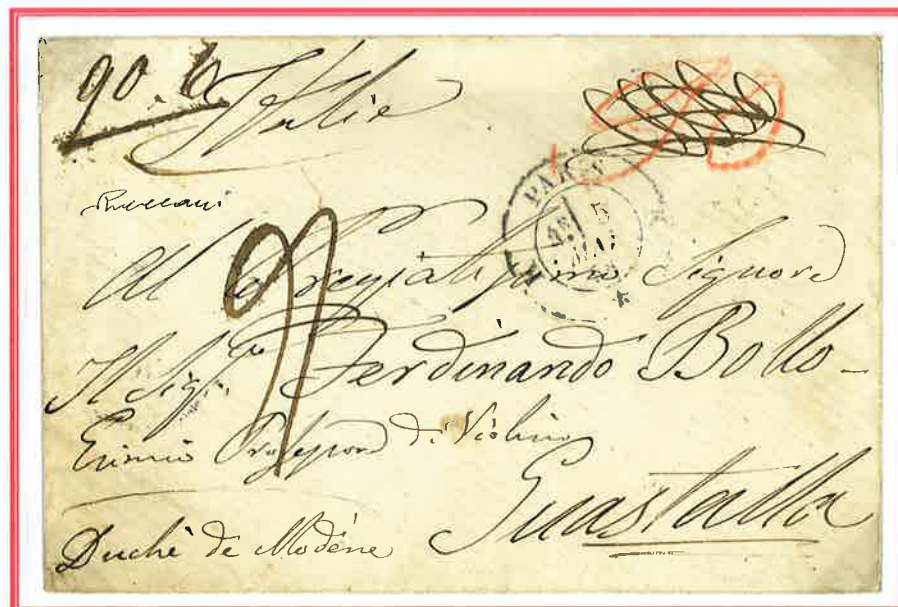 90 c
Italie
PARIS
5
Al Pregiatissimo Signore
Il Sig.re Ferdinando Bollo
Esimio Professore di Violino
Guastalla
Duché de Modène